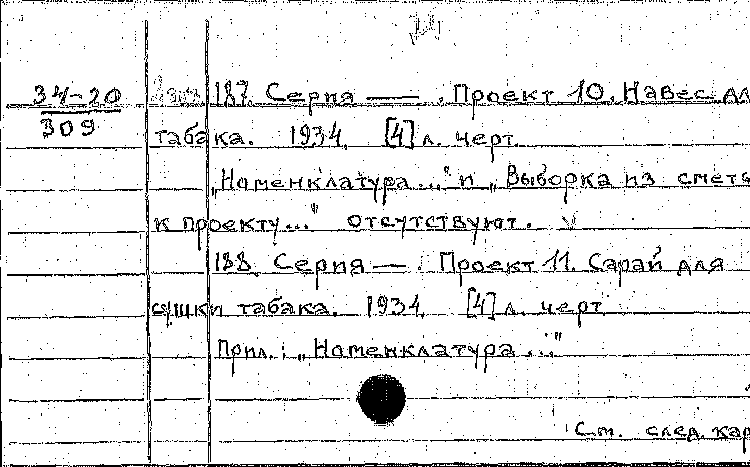 34-20
309
187. Серия — . Проект 10. Навес дл
табака. 1934. [4] л. черт.
„Номенклатура..." и „Выборка из смета
к проекту..." отсутствуют. v
188. Серия — . Проект 11. Сарай для
сушки табака. 1934. [4] л. черт.
Прил.: „Номенклатура..."
См. след. кар